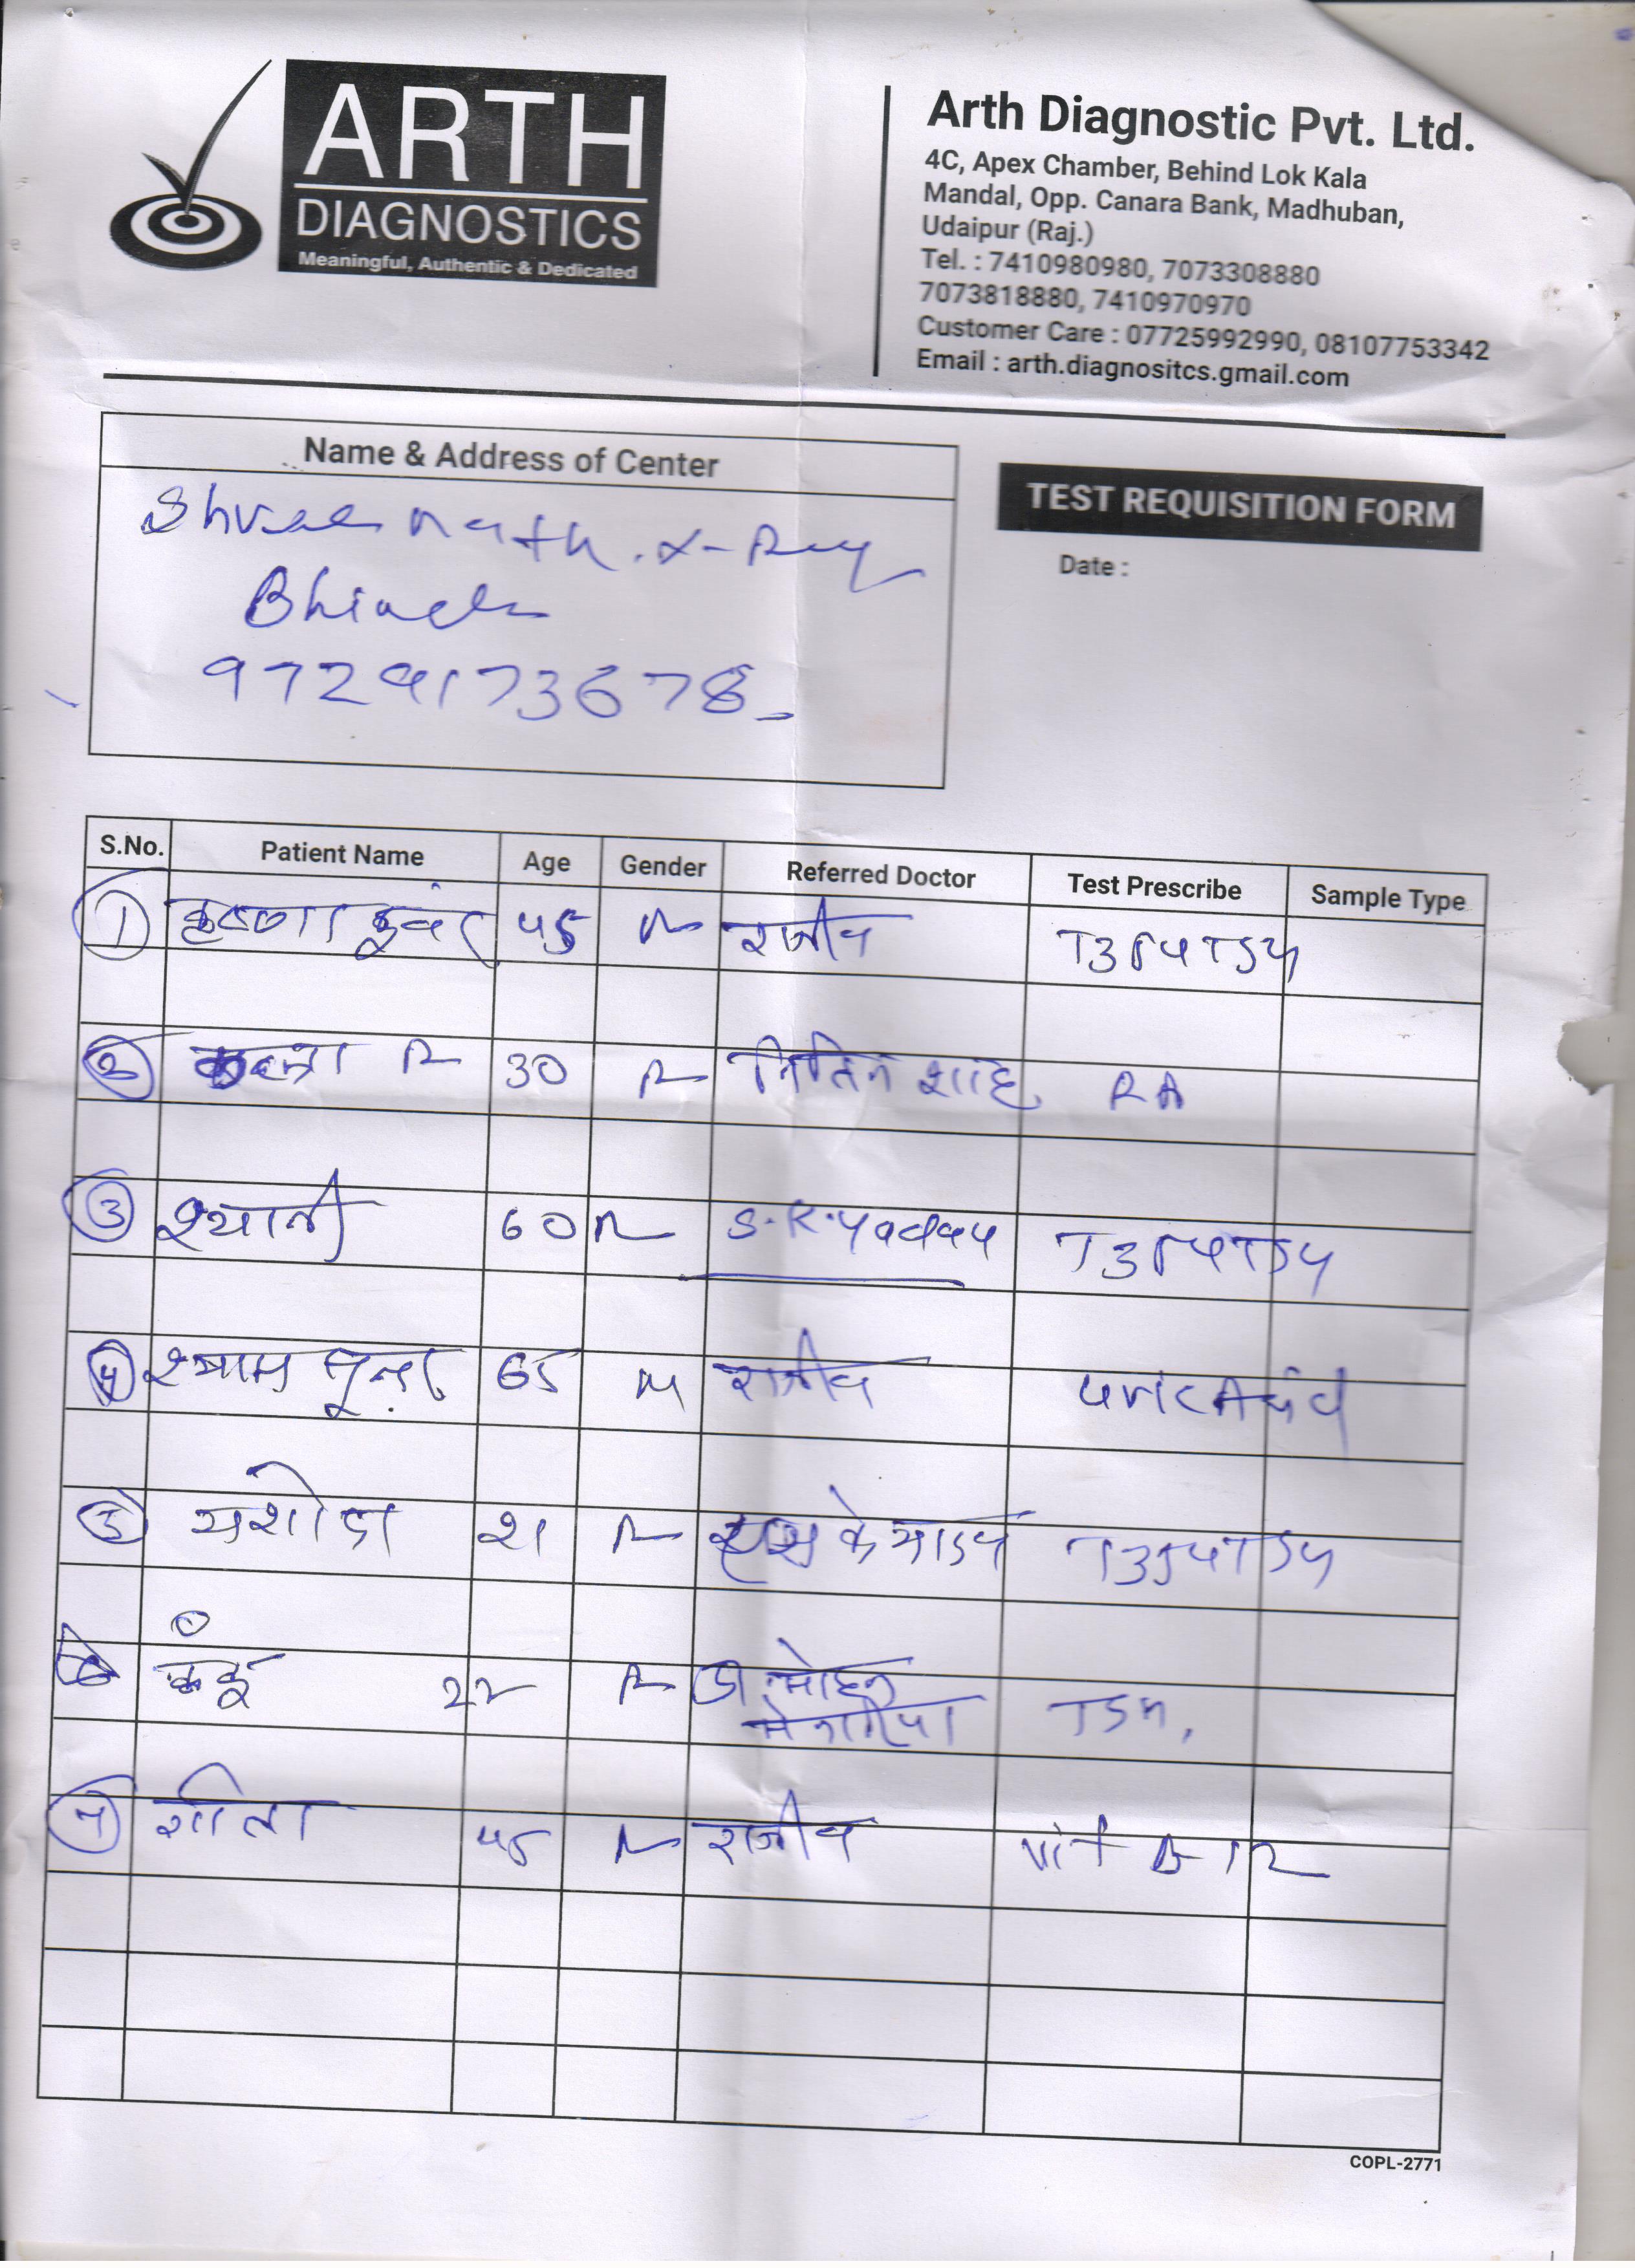 ARTH
DIAGNOSTICS
Meaningful, Authentic & Dedicated
Arth Diagnostic Pvt. Ltd.
4C, Apex Chamber, Behind Lok Kala
Mandal, Opp. Canara Bank, Madhuban,
Udaipur (Raj.)
Tel. : 7410980980, 7073308880
7073818880, 7410970970
Customer Care : 07725992990, 08107753342
Email : arth.diagnositcs.gmail.com
Name & Address of Center
Shree nath. X-Ray
9729173678
TEST REQUISITION FORM
Date :
S.No. Patient Name Age Gender Referred Doctor Test Prescribe Sample Type
1 45 राजीव T3T4TSH
2 30 नितिन शाह RA
3 60 S.R.Yadav T3T4TSH
4 श्याम 65 M राजीव uric Acid
5 यशोदा 21 T3T4TSH
6 22 मोहन TSH
7 45 राजीव vit B-12
COPL-2771